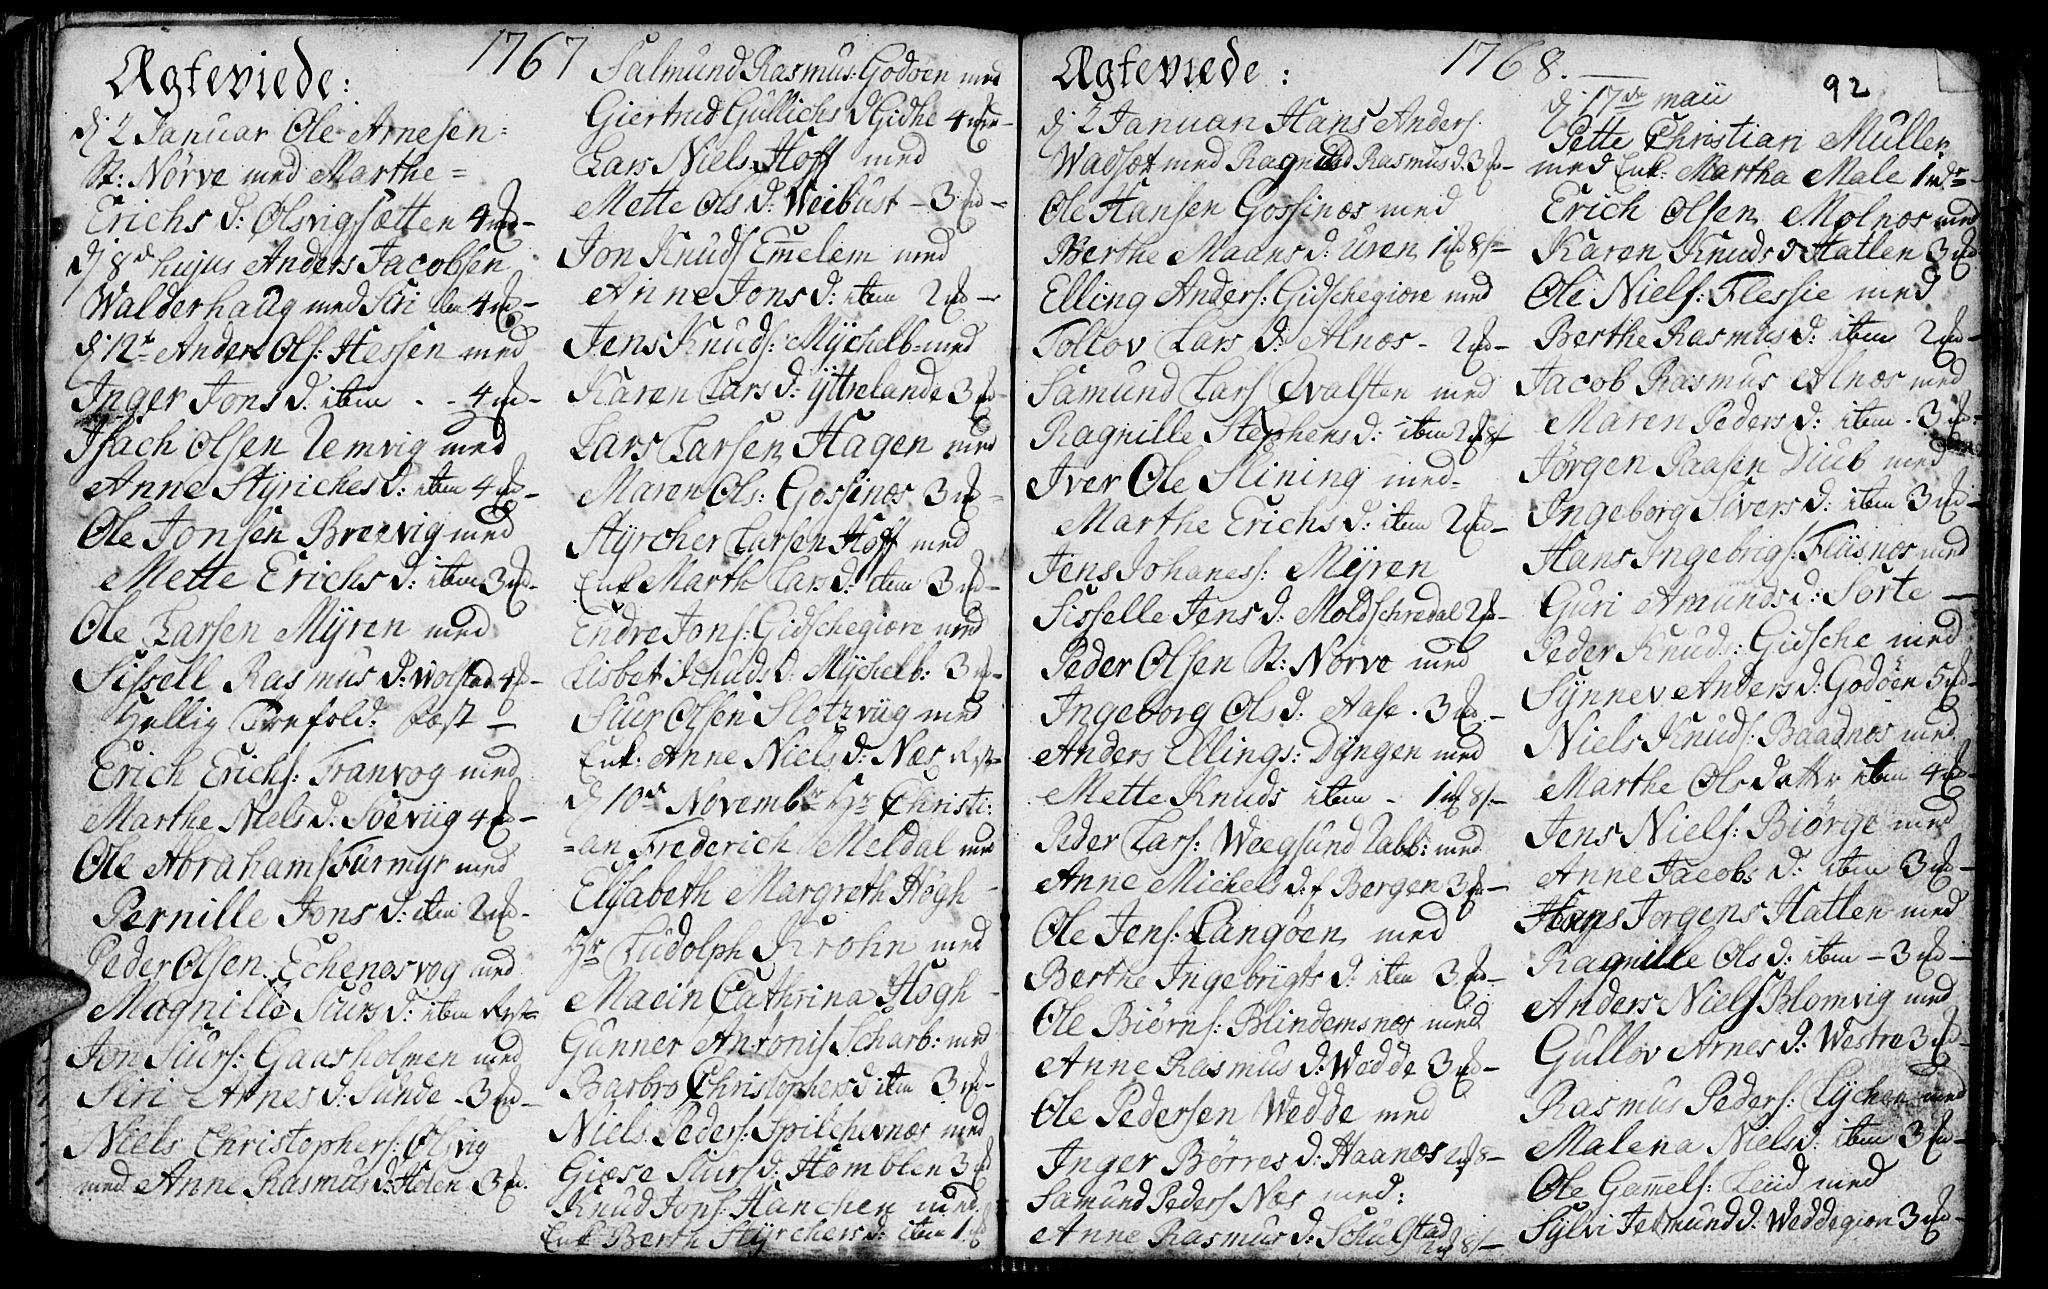 1767
Ægteviede:
dj 2 Januar Ole Arnesen
St: Nörve med Marthe
Erichs d: Olsvigsætten 4 md
dj 8de hujus Anders Jacobsen
Walderhaug med Siri Item 4 md
dj 12te Anders Ols: Hessen med
Inger Jons d. item - 4 md
Isach Olsen Remvig med
Anne Styriches d: item 4 md
Ole Jonsen Breevig med
Mette Erichs d: item 3 md
Ole Larsen Myren med
Sissell Rasmus d: Wolstad 4
Hellig Trefold. fæst
Erich Erichs: Franvog med
Marthe Niels d: Söeviig 4
Ole Abrahams Furmyr med
Pernille Jons d: item 2 md
Peder Olsen Echenosvog med
Magnille Siurs d: item
Jon Siurs: Gaasholmen med
Siri Arnes d: Sunde - 3 md
Niels Christophers: Olsvig
med Anne Rasmus d: Holen 3 md
Salmund Rasmus: Godøen med
Giertrud Gullichs d Gidske 4
Lars Niels Hoff med
Mette Ols d: Weibust - 3 md
Jon Knuds Emelem med
Anne Jons d: item 2 md
Jens Knuds: Mychelb med
Karen Lars d: yttrelande 3
Lars Larsen Hagen med
Maren Ols: Gossinæs 3
Styrcher Larsen Hoff med
Enk Marth Lars d: item 3 md
Endre Jons: Gidschegiöre med
Lisbet Knuds d. Mychelb: 3
Siur Olsen Slotzviig med
Enk: Anne Niels d: Næs
d 10de Novembr Hr Christi:
=an Frederich Meldal med
Elisabeth Margreth Högh
Hr Ludolph Krohn med
Maein Cathrina Högh
Gunner Antonis Scharb: med
Barbro Christophers d item 3 md
Niels Peders: Spilchevnæs med
Giæse Siurs d: Homblen 3
Knud Jons Hanchen med
Enk Berth Styrchers d: item 1
1768.
92
Ægteviede:
dj 2 Januari Hans Anders
Wagsöt med Ragnild Rasmus d. 3
Ole Hansen Gossinæs med
Berthe Maans d: Uren 1 md 8 s
Elling Anders: Gidschegiöre med
Tollov Lars d: Alnæs - 2 md
Samund Lars Qvalsten med
Ragnille Stephens d: item 2 md 8
Iver Ole Slining med
Marthe Erichs d: item 2 md
Jens Johanes: Myren
Sisselle Jens d: Moldschredal 2
Peder Olsen St: Nörve med
Ingeborg Ols d. Aase. 3 md
Anders Ellings: Dyngen med
Mette Knuds item - 1 md 8 s
Peder Lars: Weegsund Rabb: med
Anne Michels d. f Bergen 3
Ole Jens: Langöen med
Berthe Ingebrigts d: item 3 md
Ole Biörns: Blindemsnæs med
Anne Rasmus d: Wedde 3 md
Ole Pedersen Wedde med
Inger Börres d: Haanæs 2 md 8
Samund Peders Næs med:
Anne Rasmus d: Schulstad
2 md 8 s
dj 17de maii
Pette Christian Muller
med Enk: Martha Male 1
Erich Olsen Molnæs med
Karen Knuds d Hatlen 3
Ole Niels: Flessie med
Berthe Rasmus d: item 2 md
Jacob Rasmus Alnæs med
Maren Peders d: item. 3
Jörgen Paasen Diub med
Ingeborg Sivers d: item 3 md
Hans Ingebrigs: Flisnæs med
Guri Amunds d: Sorte
Peder Knuds: Gidsche med
Synnev Anders d: Godöen 5
Niels Knuds: Baadnæs med
Marthe Olsdatter item 4
Jens Niels: Biörge med
Anne Jacobs d: item 3
Hans Jorgens Hatlen med
Ragnille Ols d: item - 3 md
Anders Niels Blomvig med
Gullov Arnes d: Westre 3
Rasmus Peders: Lychen med
Malena Niels d: item 3
Ole Gamels: Leiid med
Sylvi Jetmund d: Weddegion 3